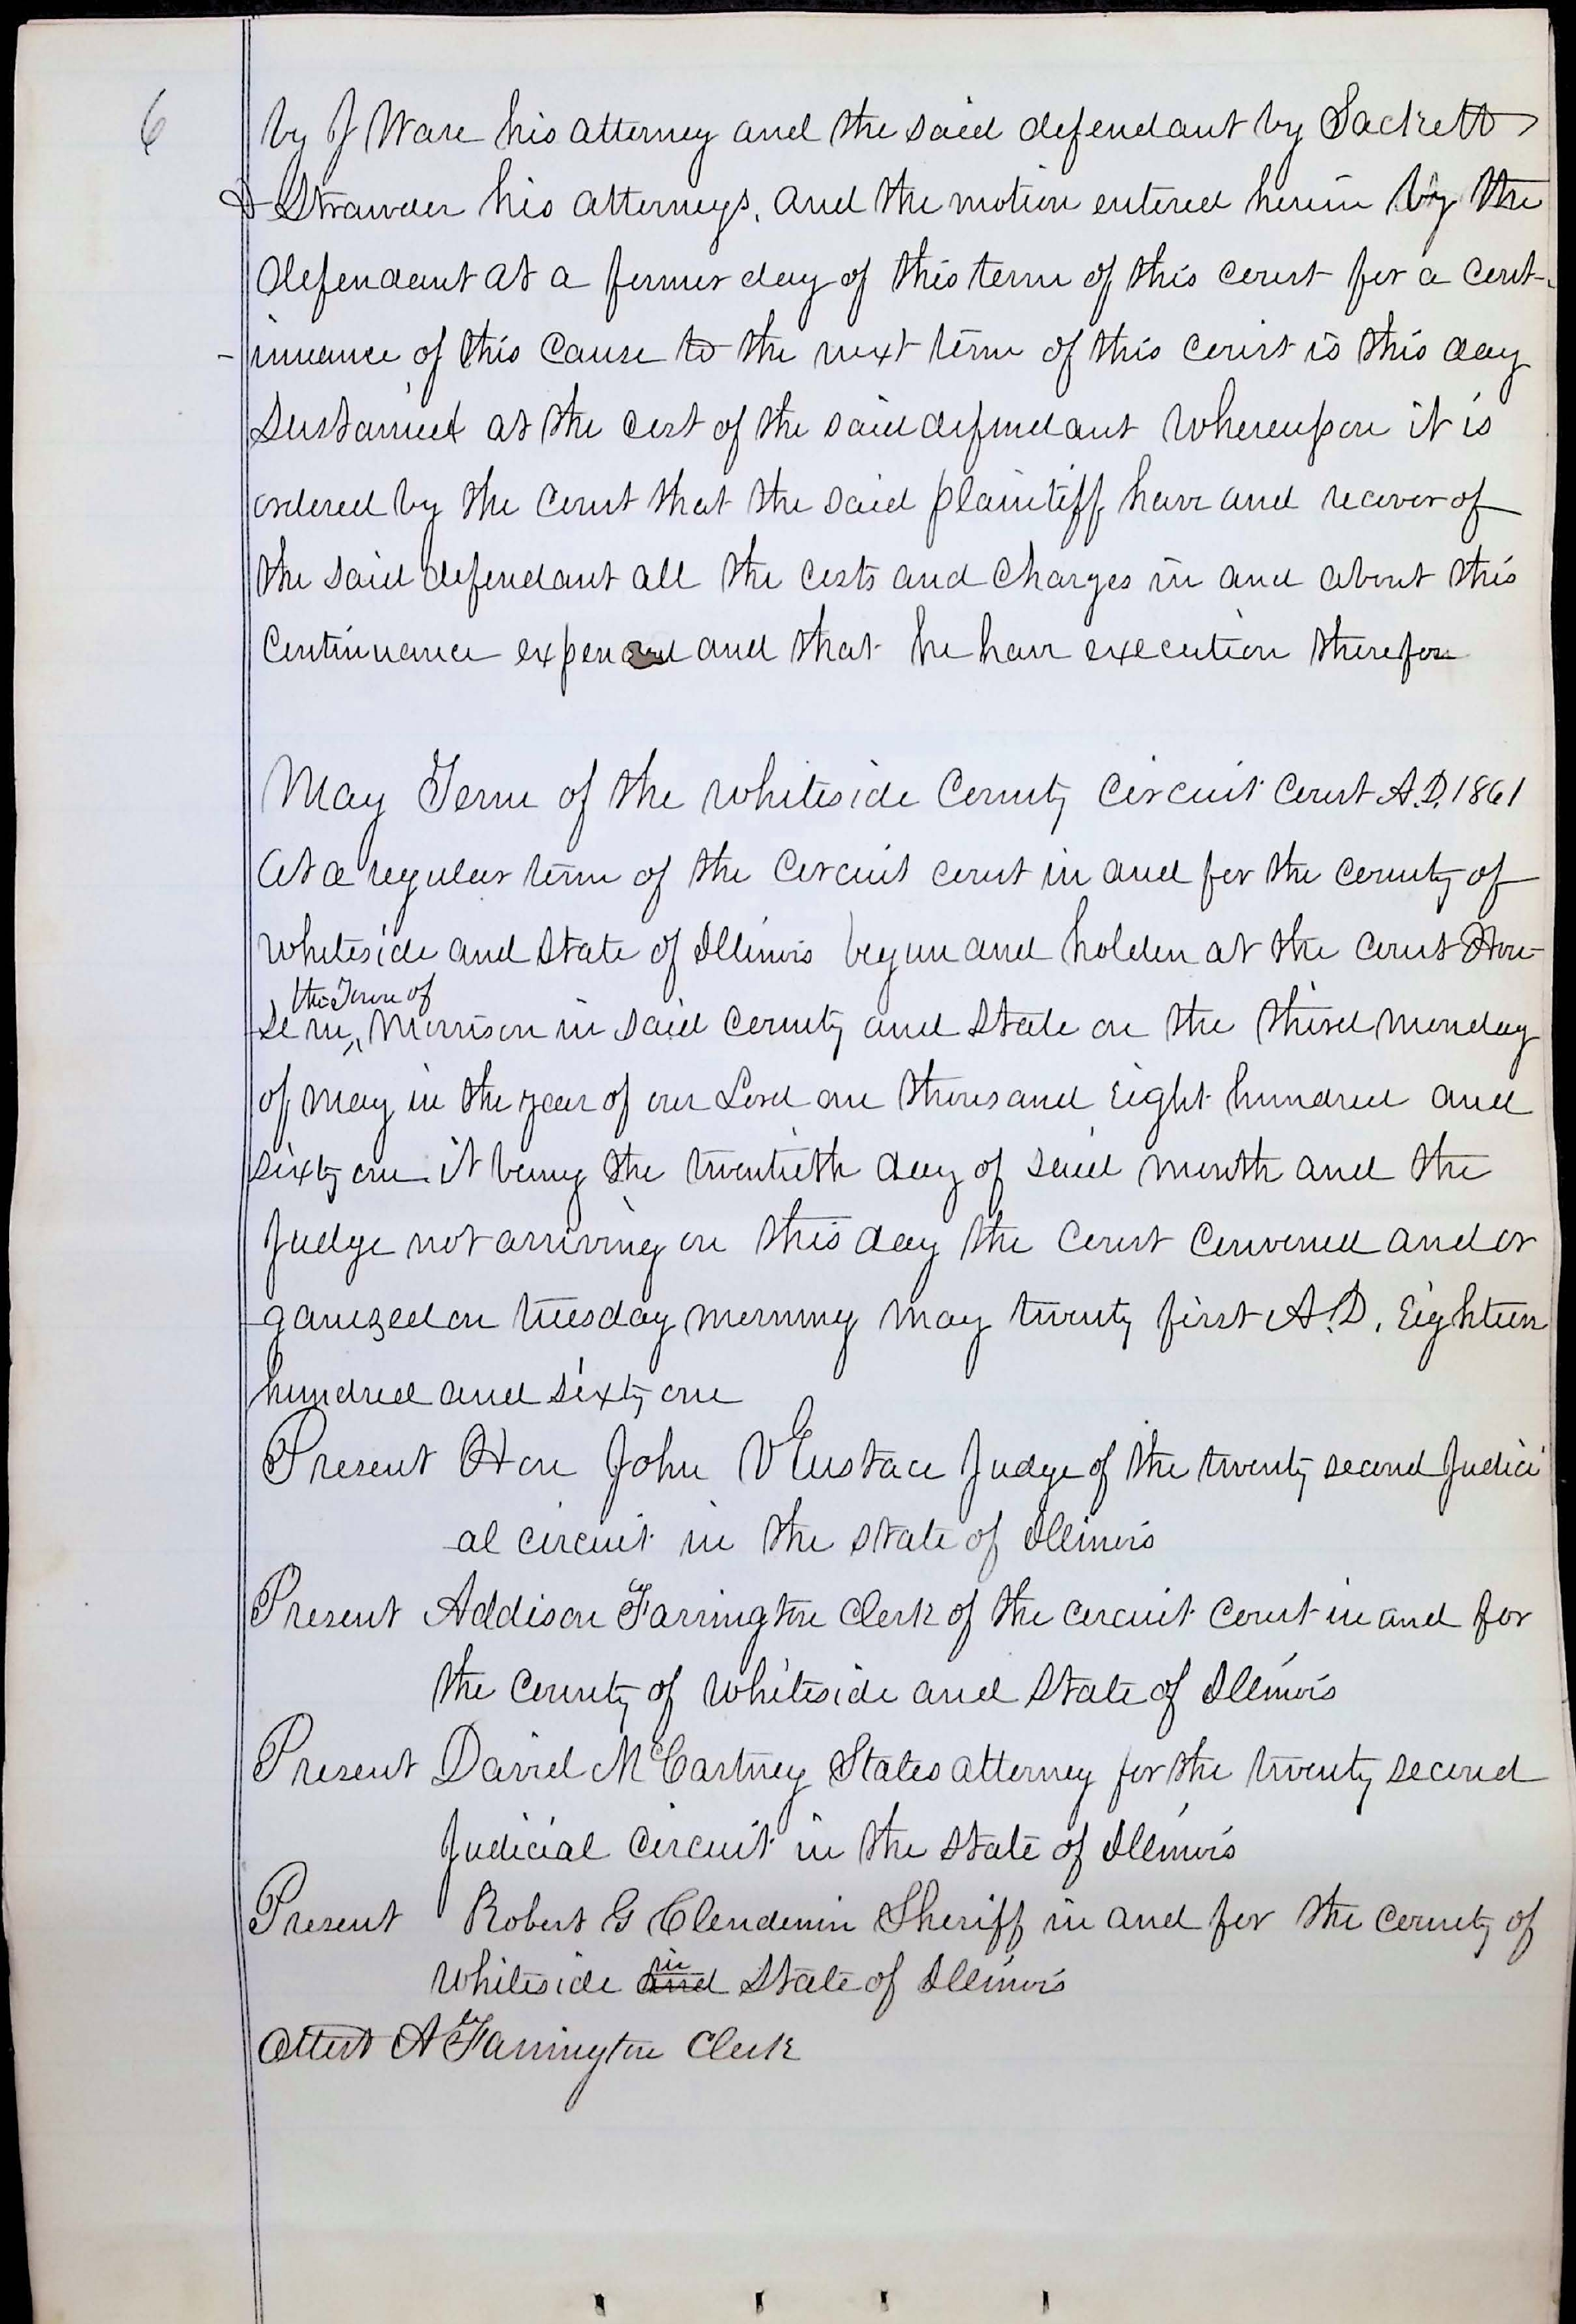 6
by J Ware his attorney and the said defendant by Sackett
& Strawder his attorneys. and the motion entered herein by the
defendant at a former day of this term of this court for a cont-
-inuance of this cause to the next term of this court is this day
sustained at the cost of the said defendant whereupon it is
ordered by the court that the said plaintiff have and recover of
the said defendant all the costs and charges in and about this
continuance expended and that he have execution therefor
May Term of the Whiteside County Circuit Court A.D. 1861
At a regular term of the circuit court in and for the county of
Whiteside and State of Illinois begun and holden at the court Hou-
the Town of
se in ^ Morrison in said county and state on the third monday
of may in the year of our Lord one thousand eight hundred and
sixty one it being the twentieth day of said month and the
Judge not arriving on this day the court convened and or
ganized on tuesday morning may twenty first A.D. Eighteen
hundred and sixty one
Present Hon John V Eustace Judge of the twenty second Judici
al circuit in the state of Illinois
Present Addison Farrington clerk of the circuit court in and for
the county of Whiteside and State of Illinois
Present David McCartney States attorney for the twenty second
Judicial circuit in the state of Illinois
Present Robert G Clendenin Sheriff in and for the county of
in
Whiteside and State of Illinois
Attest A Farrington Clerk